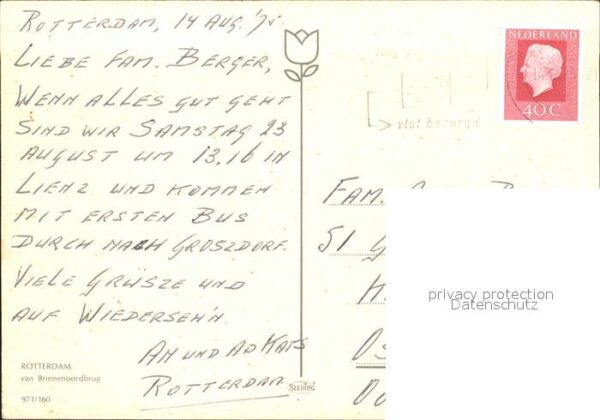 ROTTERDAM, 14 AUG. '75
LIEBE FAM. BERGER,
WENN ALLES GUT GEHT
SIND WIR SAMSTAG 23
AUGUST UM 13,16 IN
LIENZ UND KOMMEN
MIT ERSTEN BUS
DURCH NACH GROSZDORF.
VIELE GRÜSZE UND
AUF WIEDERSEH'N.
AM UND AD KATS
ROTTERDAM
ROTTERDAM
van Brienenoordbrug
971/160
NEDERLAND
40C
vlot bezorgd
FAM.
51 G
privacy protection
Datenschutz